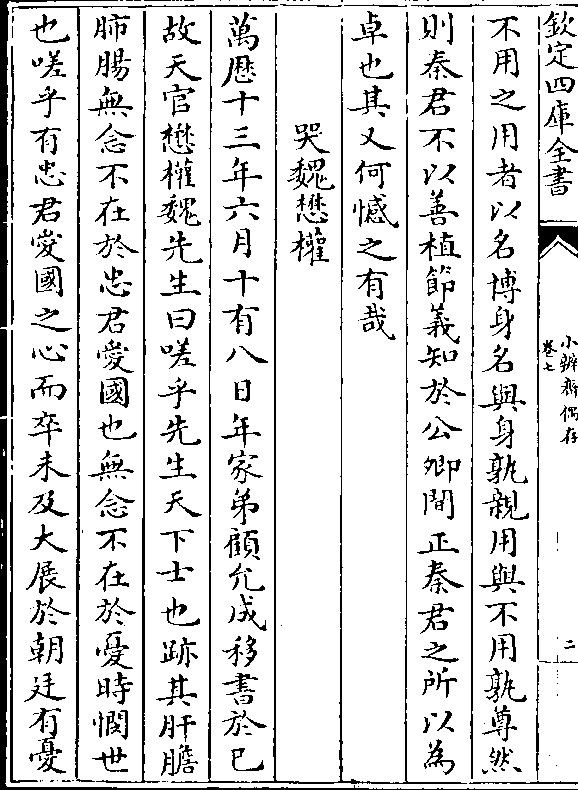 欽定四庫全書
小辨齋偶存
卷七
二
不用之用者以名博身名與身孰親用與不用孰尊然
則秦君不以善植節義知於公卿間正秦君之所以為
卓也其又何憾之有哉
哭魏懋權
萬厯十三年六月十有八日年家弟顧允成移書於已
故天官懋權魏先生曰嗟乎先生天下士也跡其肝膽
肺腸無念不在於忠君愛國也無念不在於憂時憫世
也嗟乎有忠君愛國之心而卒未及大展於朝廷有憂